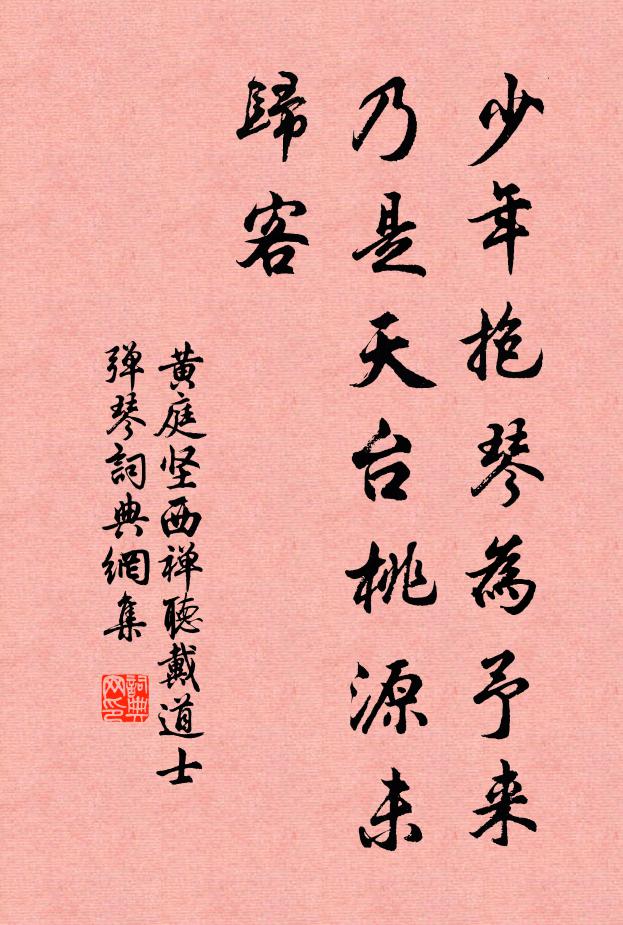 少年抱琴為予来
乃是天台桃源未
歸客
黄庭坚西禅聽戴道士
弹琴詞典網集
詞典网印